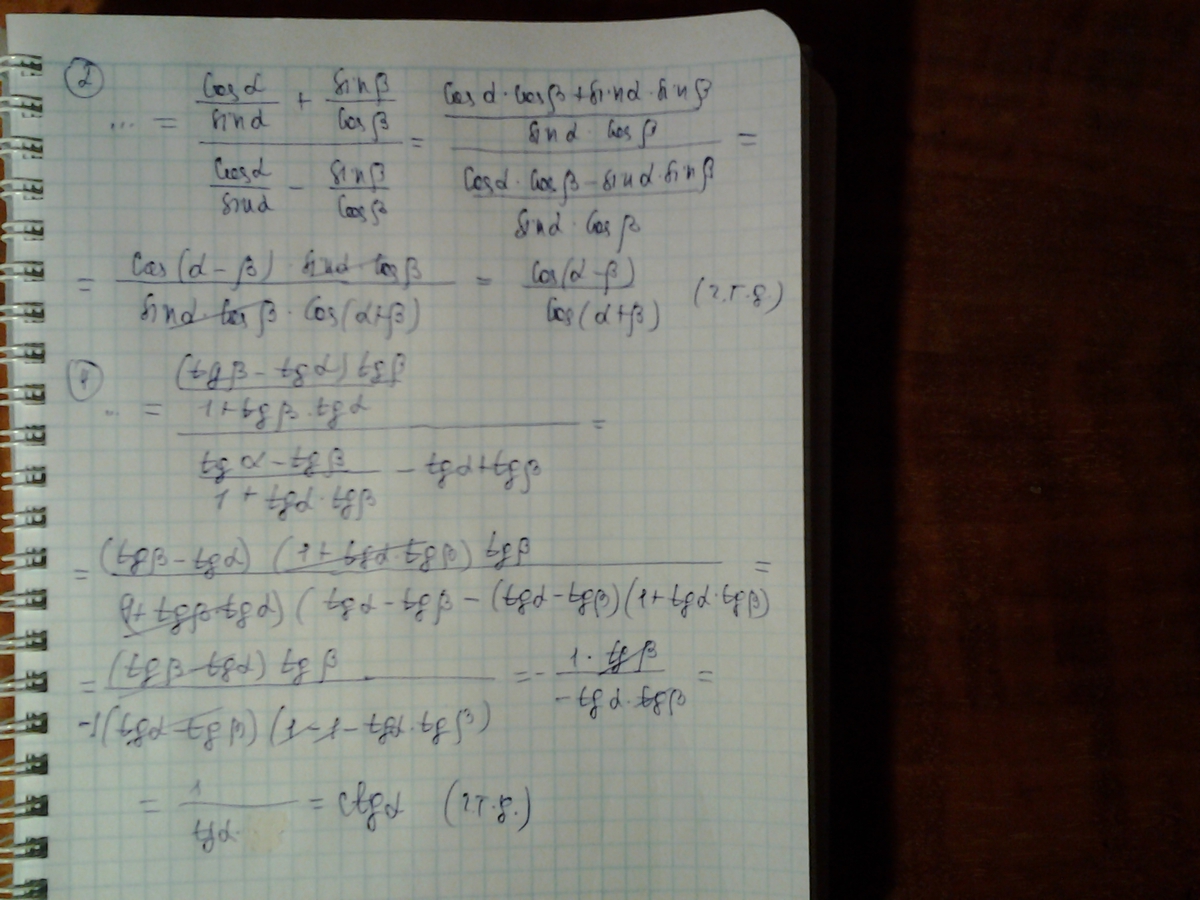 ②
... = (cos α / sin α + sin β / cos β) / (cos α / sin α − sin β / cos β) = ((cos α · cos β + sin α · sin β) / (sin α · cos β)) / ((cos α · cos β − sin α · sin β) / (sin α · cos β)) =
= (cos(α − β) · sin α · cos β) / (sin α · cos β · cos(α + β)) = cos(α − β) / cos(α + β) (ч.т.д.)
... = ((tg β − tg α) tg β / (1 + tg β · tg α)) / ((tg α − tg β) / (1 + tg α · tg β) − tg α + tg β) =
= (tg β − tg α) (1 + tg α · tg β) tg β / (1 + tg β · tg α) (tg α − tg β − (tg α − tg β)(1 + tg α · tg β) =
= (tg β − tg α) tg β / −1(tg α − tg β) (1 − 1 − tg α · tg β) = − 1 · tg β / − tg α · tg β =
= 1 / tg α = ctg α (ч.т.д.)